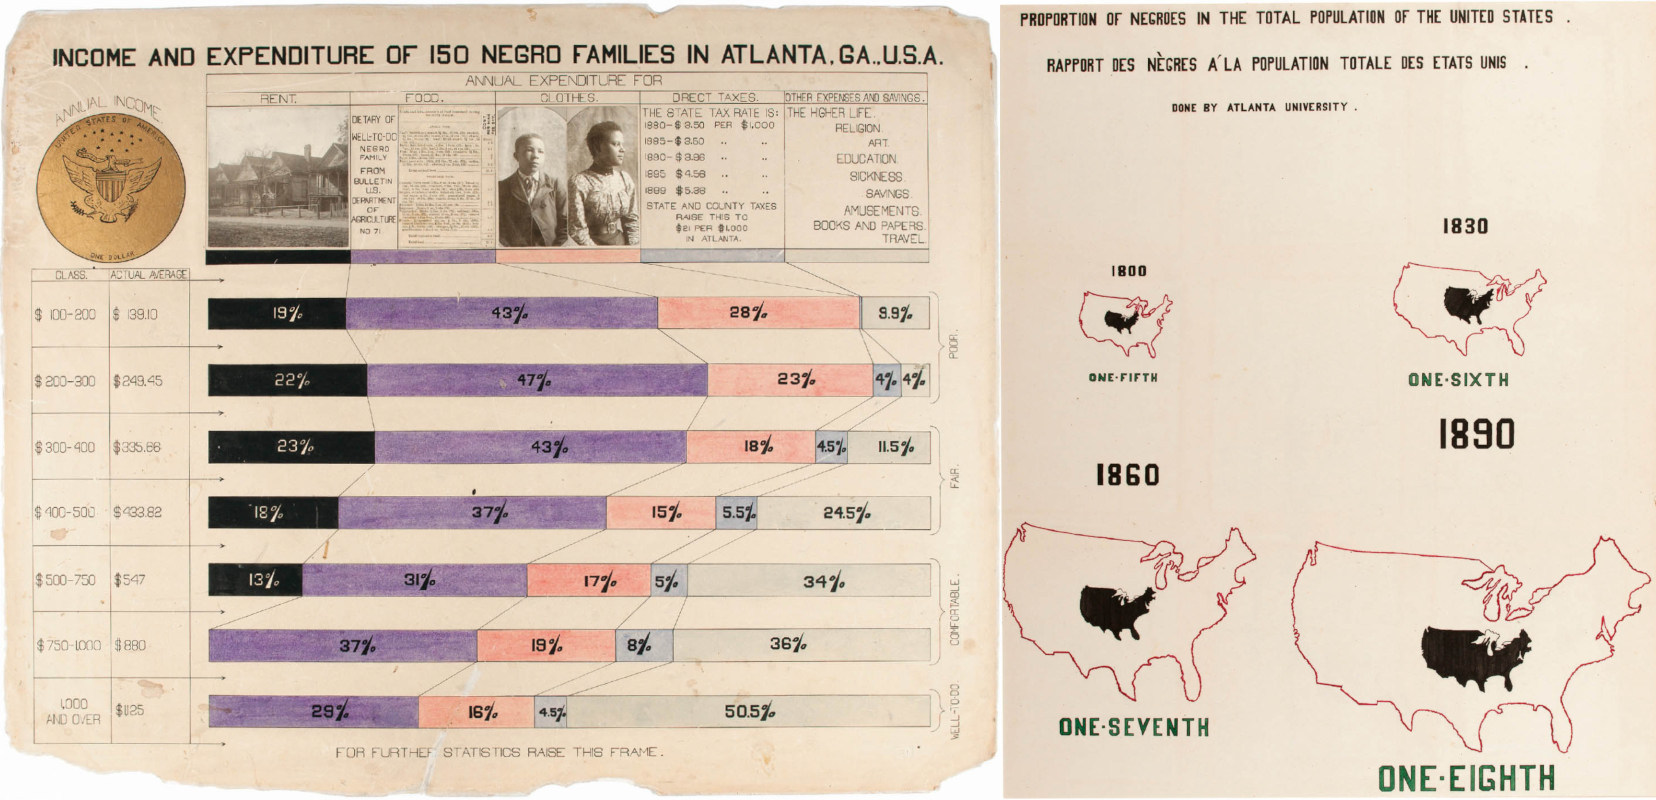 INCOME AND EXPENDITURE OF 150 NEGRO FAMILIES IN ATLANTA, GA., U.S.A.
ANNUAL INCOME.
UNITED STATES OF AMERICA
ONE DOLLAR
ANNUAL EXPENDITURE FOR
RENT. FOOD. CLOTHES. DIRECT TAXES. OTHER EXPENSES AND SAVINGS.
DIETARY OF
WELL-TO-DO
NEGRO
FAMILY
FROM
BULLETIN
U.S.
DEPARTMENT
OF
AGRICULTURE
NO 71
THE STATE TAX RATE IS:
1880-$3.50 PER $1,000
1885-$3.50 " "
1890-$3.96 " "
1895 $4.56 " "
1899 $5.36 " "
STATE AND COUNTY TAXES
RAISE THIS TO
$21 PER $1,000
IN ATLANTA.
THE HGHER LIFE.
RELIGION
ART.
EDUCATION
SICKNESS.
SAVINGS.
AMUSEMENTS.
BOOKS AND PAPERS.
TRAVEL
CLASS. ACTUAL AVERAGE
$ 100-200 $ 139.10 19% 43% 28% 9.9%
$ 200-300 $249.45 22% 47% 23% 4% 4%
POOR.
$ 300-400 $335.66 23% 43% 18% 4.5% 11.5%
$ 400-500 $433.82 18% 37% 15% 5.5% 24.5%
FAIR.
$500-750 $547 13% 31% 17% 5% 34%
$750-1000 $880 37% 19% 8% 36%
COMFORTABLE.
1,000 AND OVER $1125 29% 16% 4.5% 50.5%
WELL-TO-DO
FOR FURTHER STATISTICS RAISE THIS FRAME.
PROPORTION OF NEGROES IN THE TOTAL POPULATION OF THE UNITED STATES .
RAPPORT DES NÈGRES A´LA POPULATION TOTALE DES ETATS UNIS .
DONE BY ATLANTA UNIVERSITY .
1800
ONE-FIFTH
1830
ONE-SIXTH
1860
ONE-SEVENTH
1890
ONE-EIGHTH